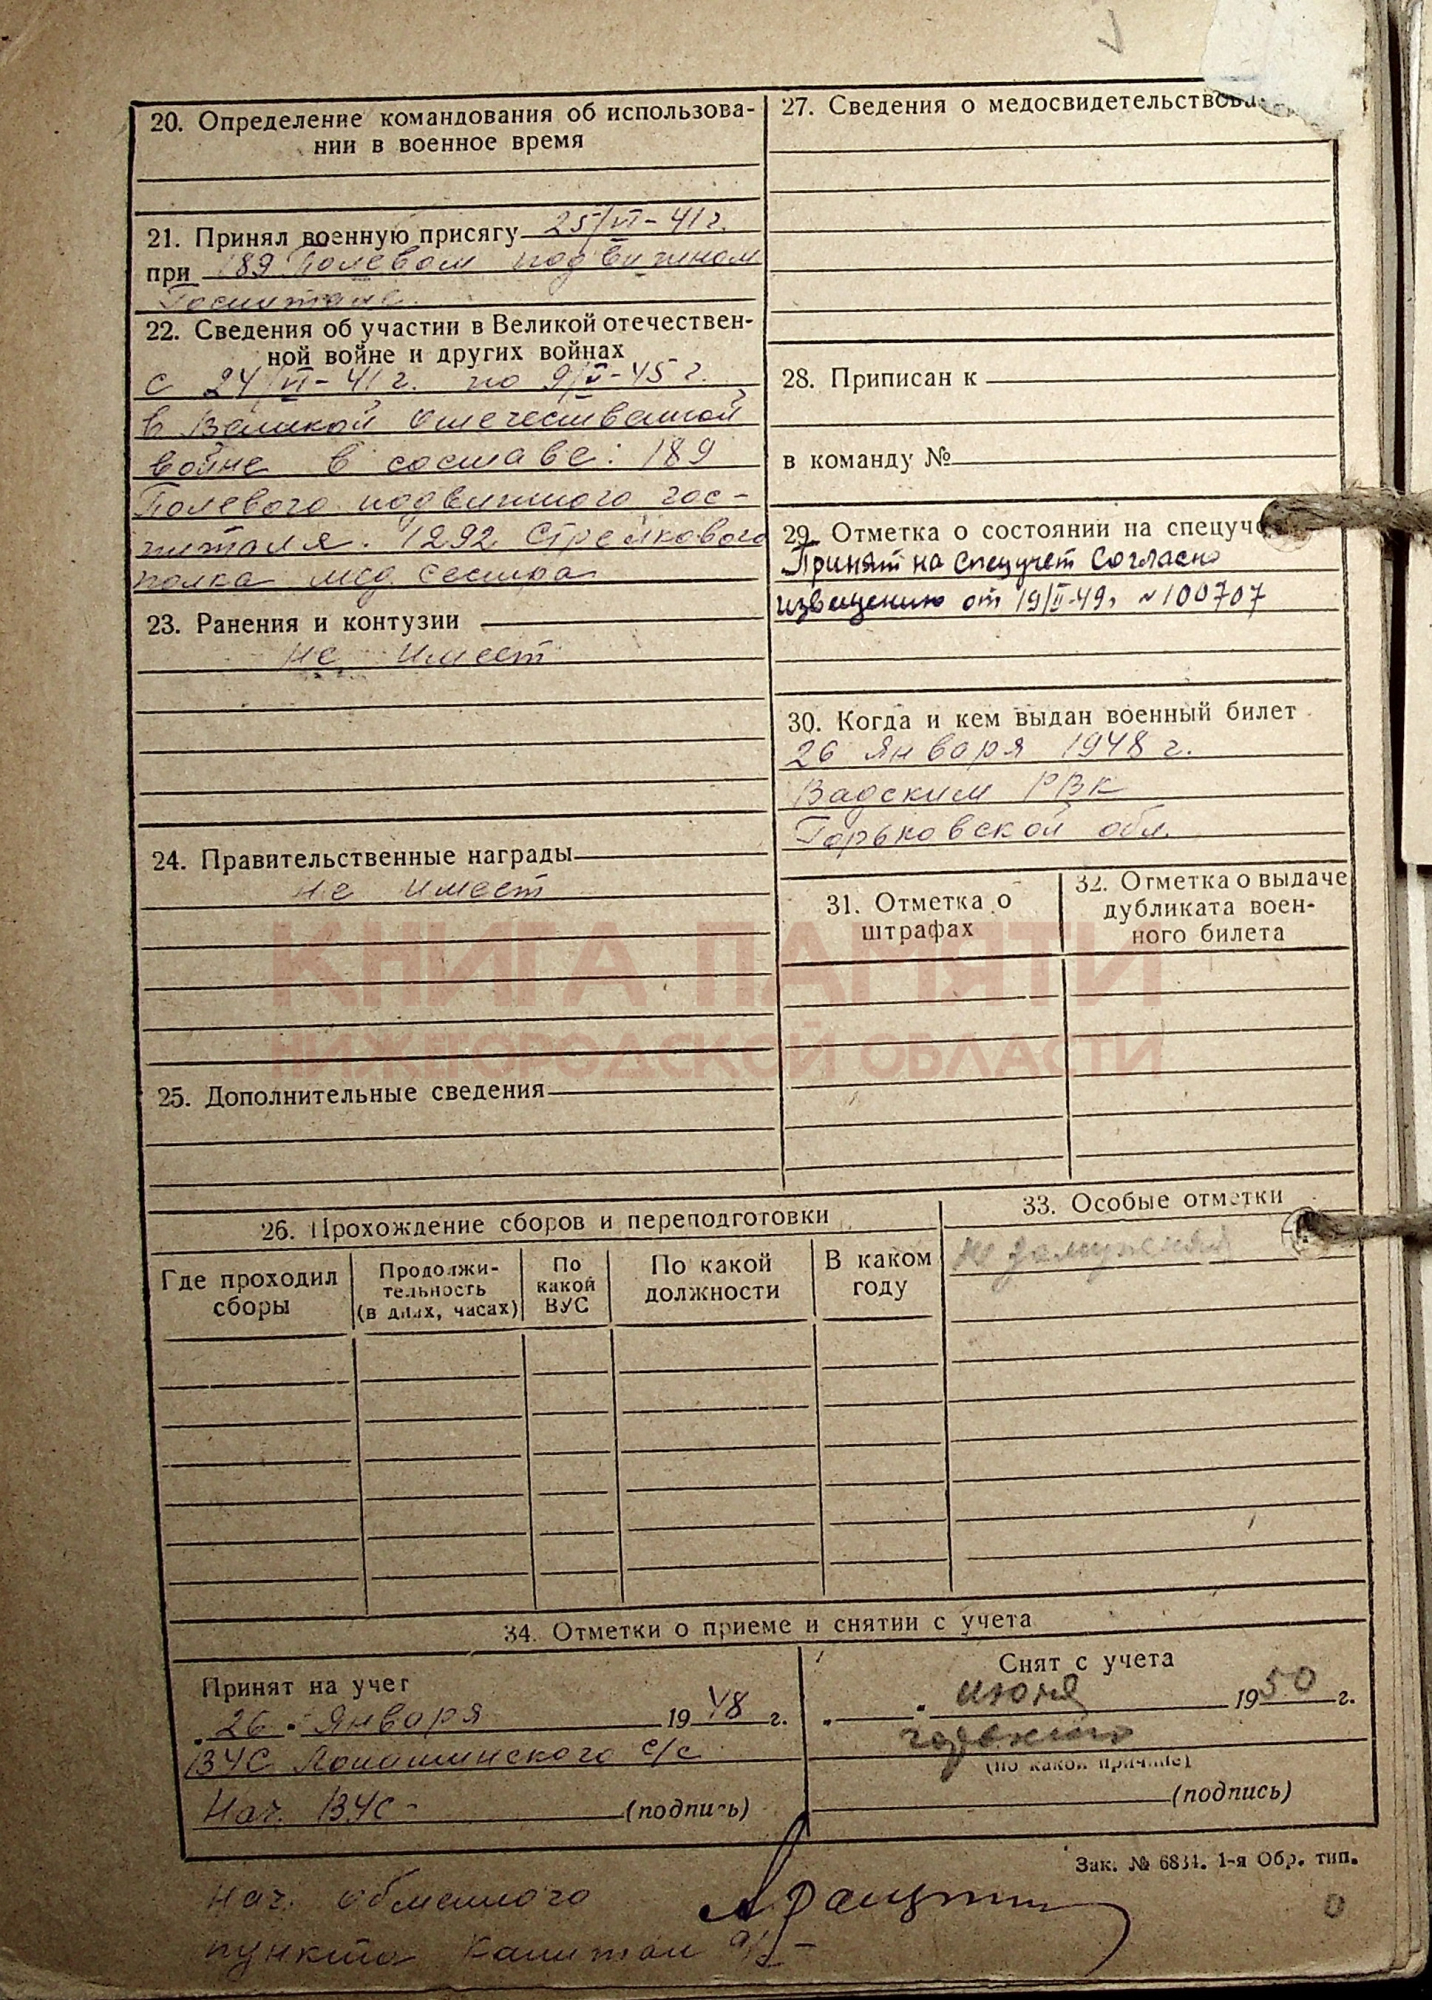 20. Определение командования об использова-
нии в военное время
21. Принял военную присягу 25/VI-41г.
при 189 Полевом подвижном
Госпитале.
22. Сведения об участии в Великой отечествен-
ной войне и других войнах
с 24/VI-41г. по 9/V-45г.
в Великой Отечественной
войне в составе: 189
Полевого подвижного гос-
питаля. 1292 Стрелкового
полка мед. сестра
23. Ранения и контузии
Не имеет
24. Правительственные награды
Не имеет
25. Дополнительные сведения
27. Сведения о медосвидетельствова
28. Приписан к
в команду №
29. Отметка о состоянии на спецуче
Принят на спецучет согласно
извещению от 19/II-49г № 100707
30. Когда и кем выдан военный билет
26 января 1948 г.
Вадским РВК
Горьковской обл.
31. Отметка о
штрафах
32. Отметка о выдаче
дубликата воен-
ного билета
КНИГА ПАМЯТИ
НИЖЕГОРОДСКОЙ ОБЛАСТИ
26. Прохождение сборов и переподготовки
Где проходил
сборы
Продолжи-
тельность
(в днях, часах)
По
какой
ВУС
По какой
должности
В каком
году
33. Особые отметки
не замужняя
34. Отметки о приеме и снятии с учета
Принят на учет
26. Января 1948 г.
ВУС с/с
Нач. ВУС - (подпись)
Снят с учета
июня 1950 г.
(по какой причине)
(подпись)
Зак. № 6834. 1-я Обр. тип.
Нач. обменного
пункта Капитан а/с -